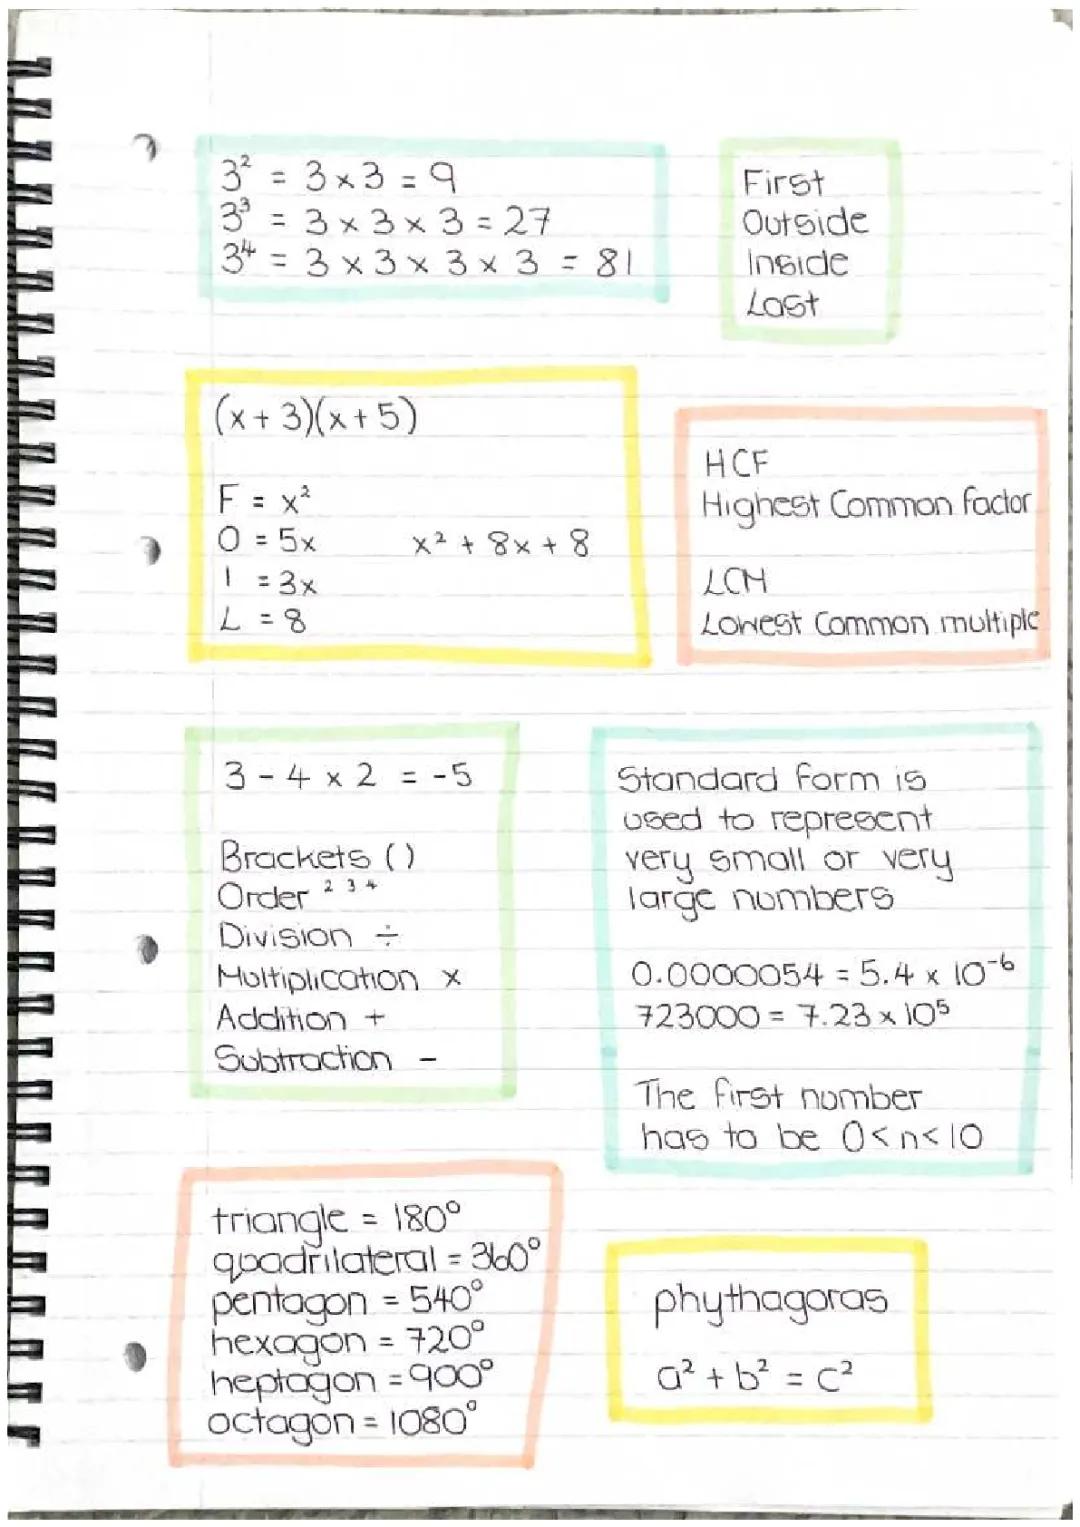 3² = 3 × 3 = 9
3³ = 3 × 3 × 3 = 27
3⁴ = 3 × 3 × 3 × 3 = 81
First
Outside
Inside
Last
(x + 3)(x + 5)
F = x²
O = 5x x² + 8x + 8
I = 3x
L = 8
HCF
Highest Common factor
LCM
Lowest Common multiple
3 - 4 × 2 = -5
Brackets ()
Order ² ³ ⁴
Division ÷
Multiplication ×
Addition +
Subtraction -
Standard form is
used to represent
very small or very
large numbers
0.0000054 = 5.4 × 10⁻⁶
723000 = 7.23 × 10⁵
The first number
has to be 0<n<10
triangle = 180°
quadrilateral = 360°
pentagon = 540°
hexagon = 720°
heptagon = 900°
octagon = 1080°
phythagoras
a² + b² = c²